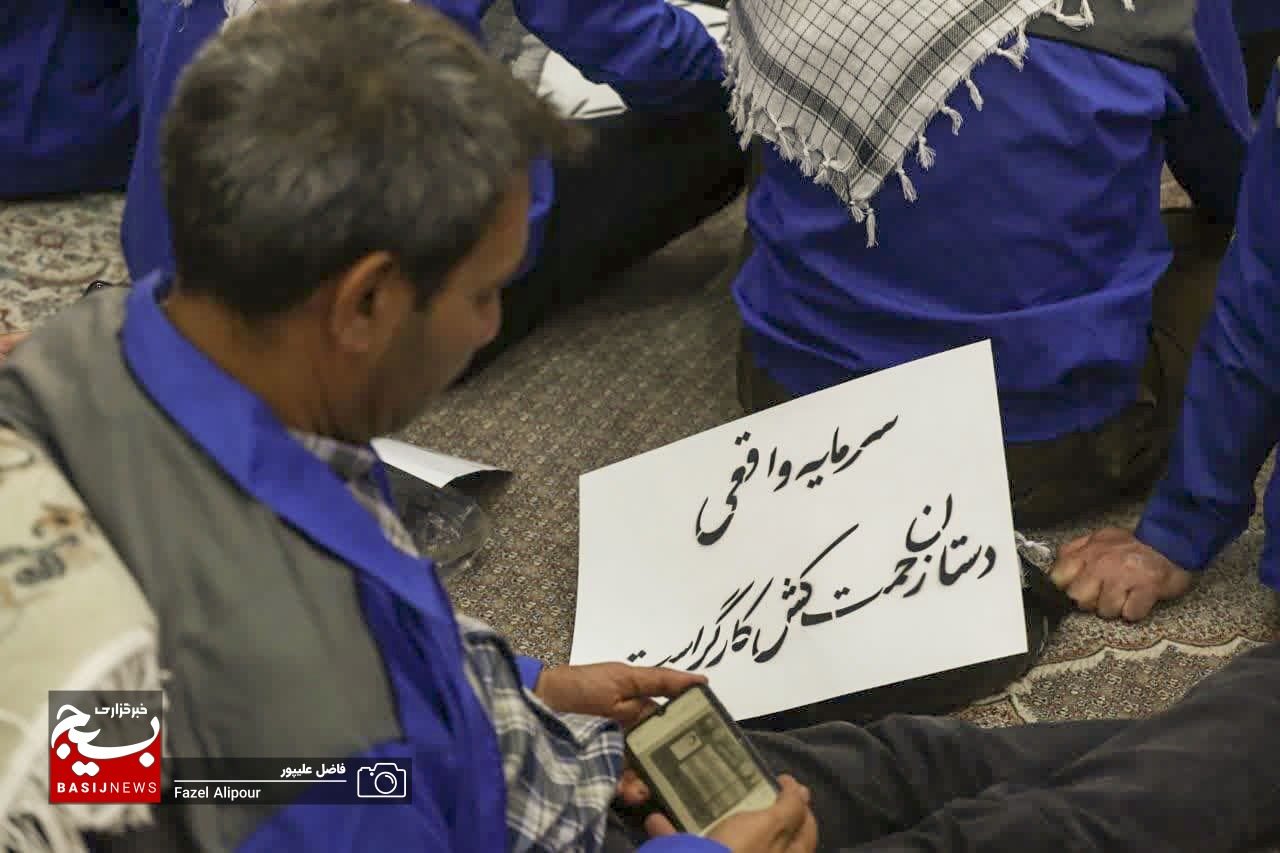 سرمایه واقعی
دستان زحمت کش کارگر است
خبرگزاری
بسیج
BASIJNEWS
فاضل علیپور
Fazel Alipour